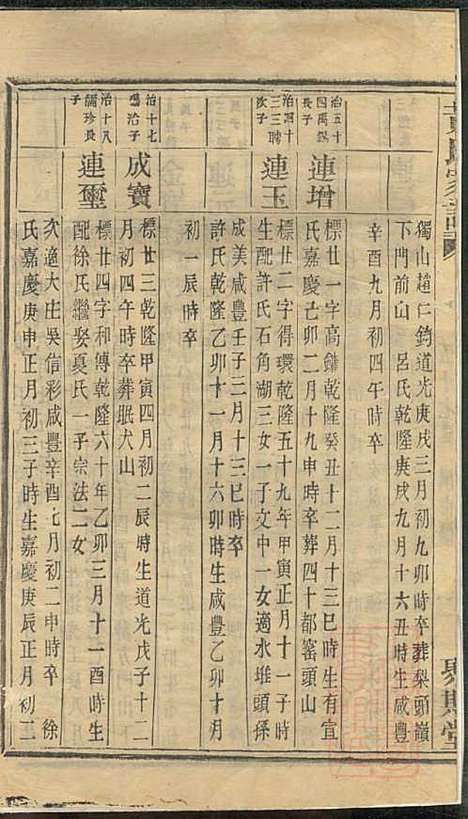 獨山趙仁鈞道光庚戌三月初九卯時卒葬梨頭嶺
下門前山　呂氏乾隆庚戌九月十六丑時生咸豐
辛酉九月初四午時卒
連增
標廿一字高鏞乾隆癸丑十二月十三巳時生有宜
氏嘉慶己卯二月十九申時卒葬四十都窑頭山
治四十
三三聘
次子
連玉
標廿二字得環乾隆五十九年甲寅正月十一子時
生配許氏石角湖三女一子文中一女適水堆頭孫
成美咸豐壬子三月十三巳時卒
許氏乾隆乙卯十一月十六卯時生咸豐乙卯十月
初一辰時卒
治十七
成寶
標廿三乾隆甲寅四月初二辰時生道光戊子十二
月初四午時卒葬眠犬山
治十八
連璽
標廿四字和傳乾隆六十年乙卯三月十一酉時生
配徐氏繼娶夏氏一子宗法二女
次適大庄吳信彩咸豐辛酉七月初二申時卒　徐
氏嘉慶庚申正月初三子時生嘉慶庚辰正月初三